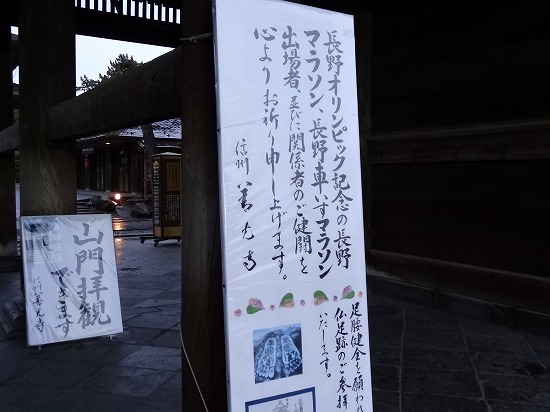 長野オリンピック記念の長野
マラソン、長野車いすマラソン
出場者、並びに関係者のご健闘を
心よりお祈り申し上げます。
信州 善光寺
足腰健全を願われ
仏足跡のご参拝
いたします。
山門拝観
できます
信州善光寺